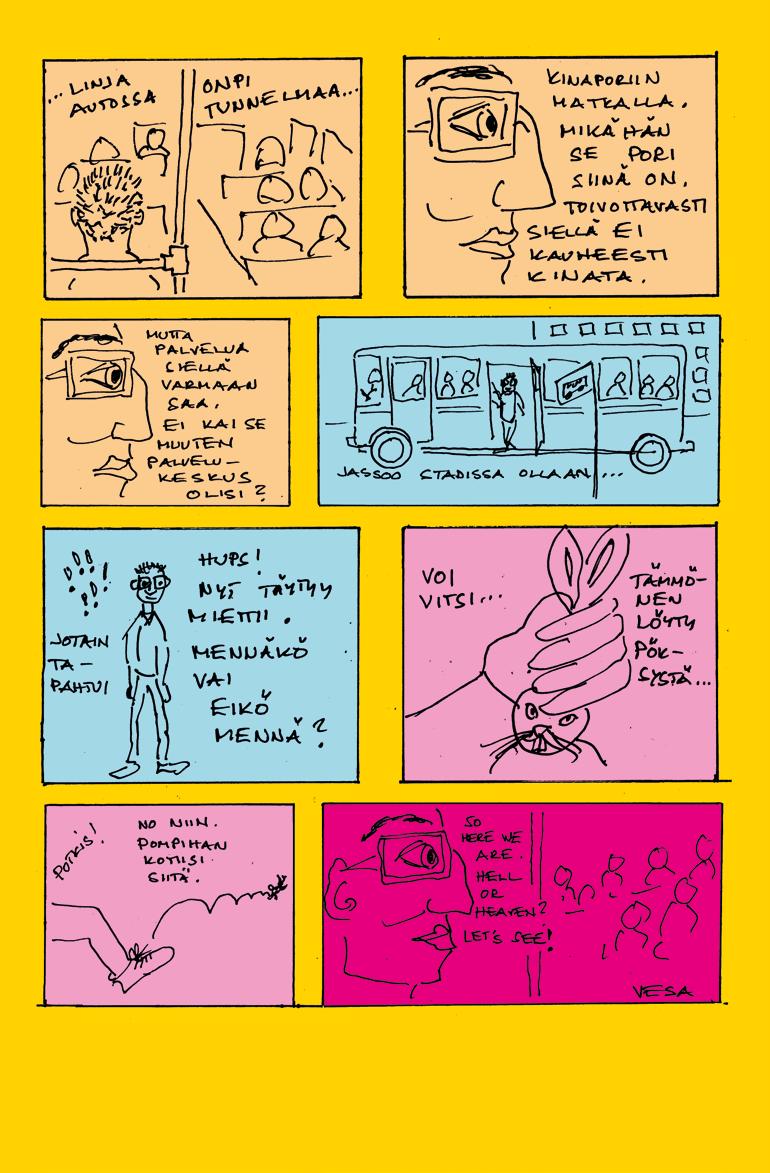 ...LINJA
AUTOSSA
ONPI
TUNNELMAA...
KINAPORIIN
MATKALLA.
MIKÄHÄN
SE PORI
SIINÄ ON.
TOIVOTTAVASTI
SIELLÄ EI
KAUHEESTI
KINATA.
MUTTA
PALVELUA
SIELLÄ
VARMAAN
SAA.
EI KAI SE
MUUTEN
PALVELU-
KESKUS
OLISI?
JASSOO STADISSA OLLAAN...
JOTAIN
TA-
PAHTUI
HUPS!
NYT TÄYTYY
MIETTII.
MENNÄKÖ
VAI
EIKÖ
MENNÄ?
VOI
VITSI...
TÄMMÖ-
NEN
LÖYTY
PÖK-
SYSTÄ...
POTKIS!
NO NIIN.
POMPIHAN
KOTIISI
SIITÄ.
SO
HERE WE
ARE.
HELL
OR
HEAVEN?
LET'S SEE!
VESA